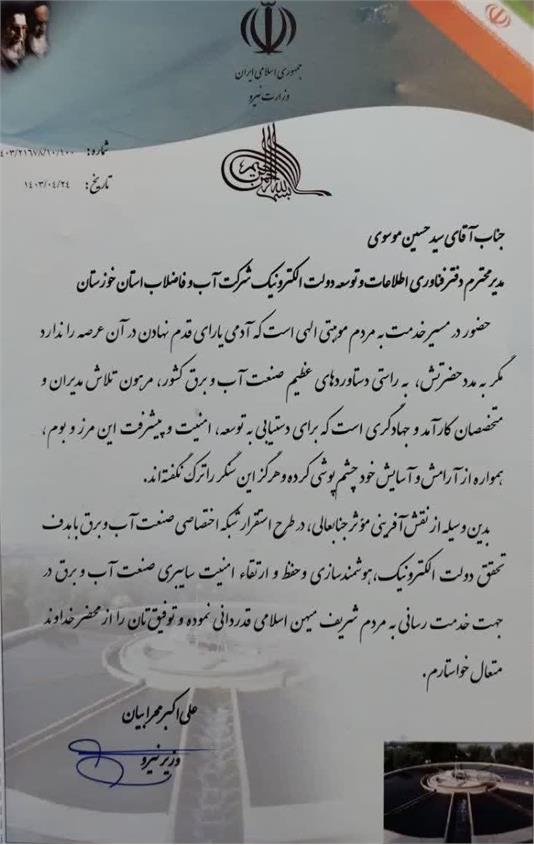 جمهوری اسلامی ایران
وزارت نیرو
شماره: ۴۰۳/۲۱۶۷۸/۱۰/۱۰۰
تاریخ: ۱۴۰۳/۰۴/۲۴
بسم الله الرحمن الرحیم
جناب آقای سید حسین موسوی
مدیر محترم دفتر فناوری اطلاعات و توسعه دولت الکترونیک شرکت آب و فاضلاب استان خوزستان
حضور در مسیر خدمت به مردم موهبتی الهی است که آدمی یارای قدم نهادن در آن عرصه را ندارد
مگر به مدد حضرتش، به راستی دستاوردهای عظیم صنعت آب و برق کشور، مرهون تلاش مدیران و
متخصصان کارآمد و جهادگری است که برای دستیابی به توسعه، امنیت و پیشرفت این مرز و بوم،
همواره از آرامش و آسایش خود چشم پوشی کرده و هرگز این سنگر را ترک نگفته اند.
بدین وسیله از نقش آفرینی مؤثر جنابعالی، در طرح استقرار شبکه اختصاصی صنعت آب و برق با هدف
تحقق دولت الکترونیک، هوشمندسازی و حفظ و ارتقاء امنیت سایبری صنعت آب و برق در
جهت خدمت رسانی به مردم شریف میهن اسلامی قدردانی نموده و توفیق تان را از محضر خداوند
متعال خواستارم.
علی اکبر محرابیان
وزیر نیرو